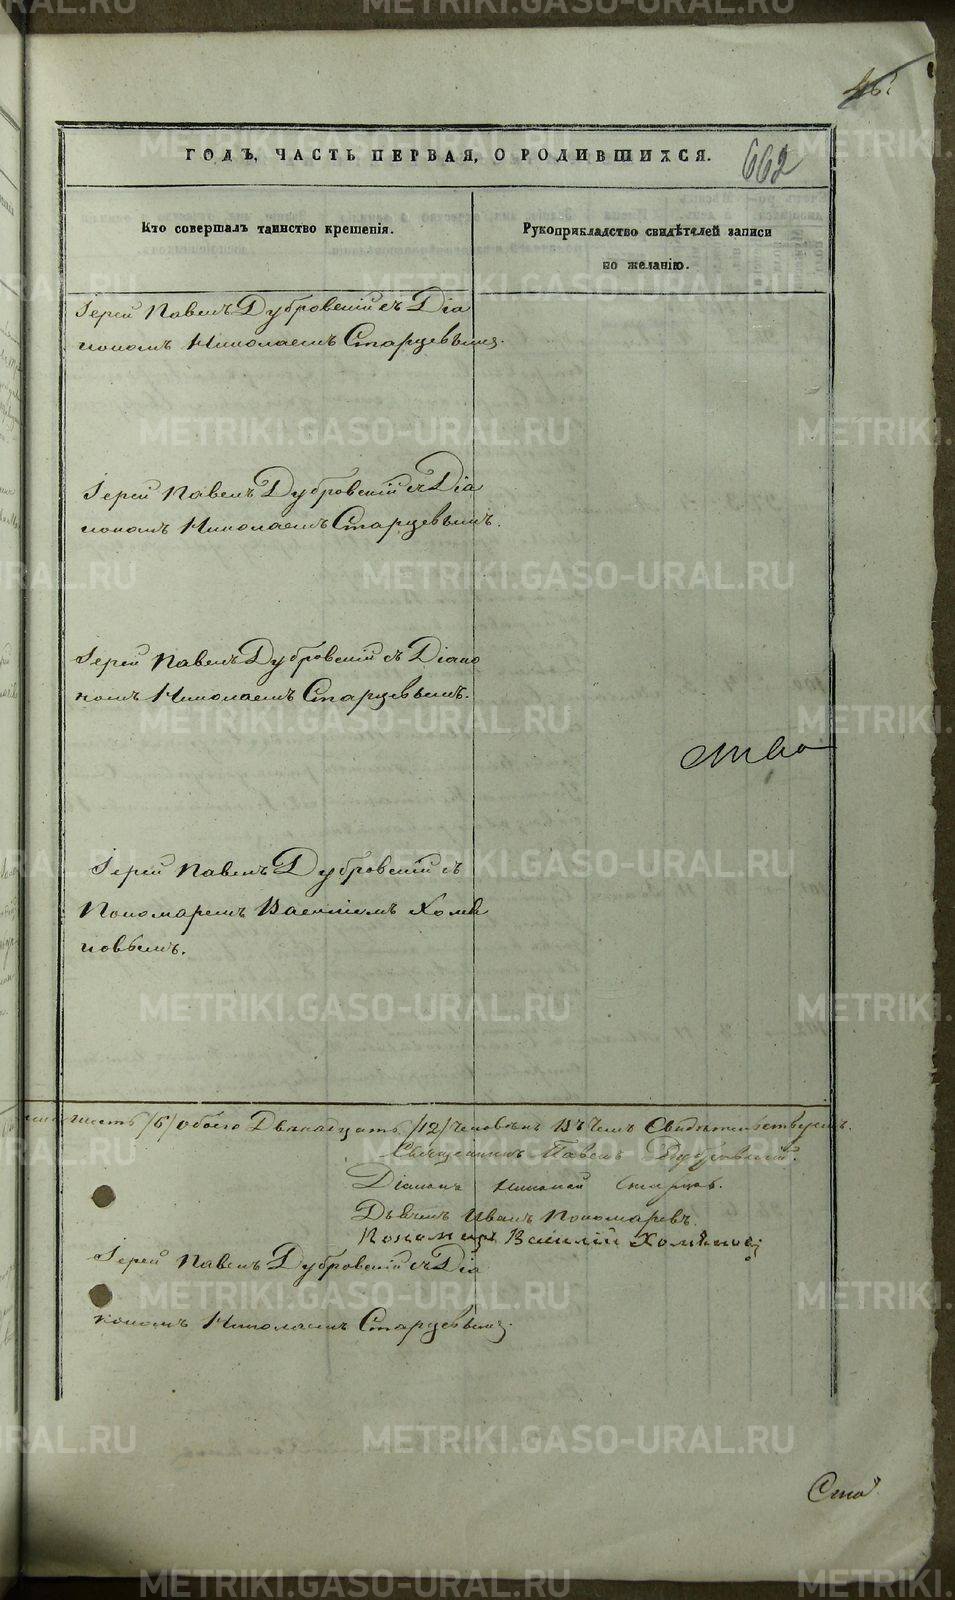 METRIKI.GASO-URAL.RU
662
ГОДЪ, ЧАСТЬ ПЕРВАЯ, О РОДИВШИХСЯ.
Кто совершалъ таинство крещенія.
Рукоприкладство свидѣтелей записи
по желанію.
Іерей Павелъ Дубровскій съ Діа
кономъ Николаемъ Старцевымъ.
Іерей Павелъ Дубровскій съ Діа
кономъ Николаемъ Старцевымъ.
Іерей Павелъ Дубровскій съ Діако
номъ Николаемъ Старцевымъ.
Іерей Павелъ Дубровскій съ
Пономаремъ Василіемъ Хомя
ковымъ.
шесть /6/ обоего Двенадцать /12/ человекъ Въ чемъ Свидетельствуемъ.
Священникъ Павелъ Дубровскій.
Діаконъ Николай Старцов.
Дьячекъ Иванъ Пономаревъ.
Пономарь Василій Хомяков
Іерей Павелъ Дубровскій съ Діа
кономъ Николаемъ Старцевымъ.